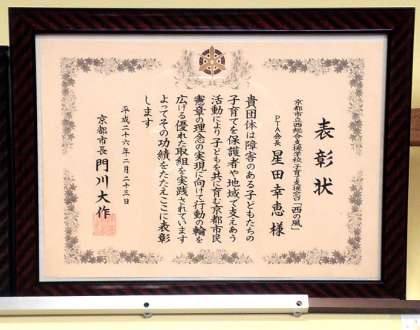 表彰状
京都市立西総合支援学校「子育て支援ひろば「西の風」
PTA会長 星田幸恵 様
貴団体は障害のある子どもたちの
子育てを保護者や地域で支えあう
活動により子どもを共に育む京都市民
憲章の理念の実現に向けて行動の輪を
広げる優れた取組を実践されています
よってその功績をたたえここに表彰
します
平成二十六年二月二十三日
京都市長 門川大作